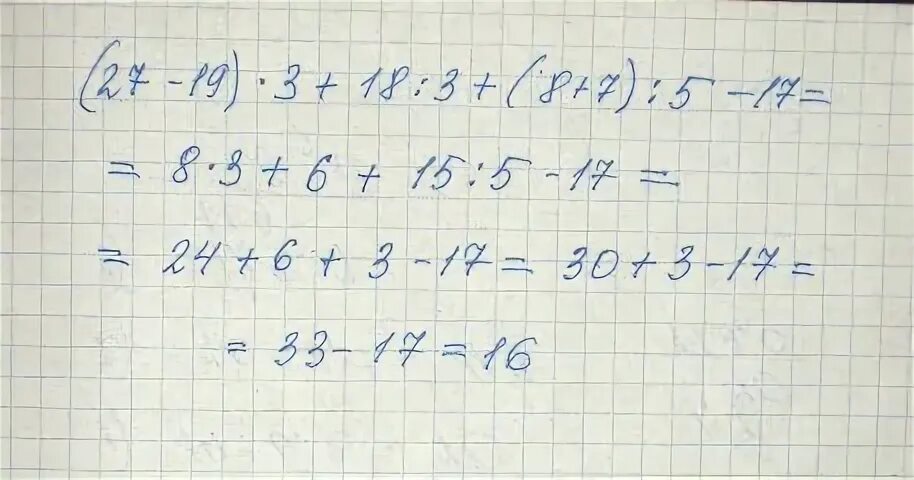 (27 - 19) · 3 + 18 : 3 + (8 + 7) : 5 - 17 =
= 8 · 3 + 6 + 15 : 5 - 17 =
= 24 + 6 + 3 - 17 = 30 + 3 - 17 =
= 33 - 17 = 16